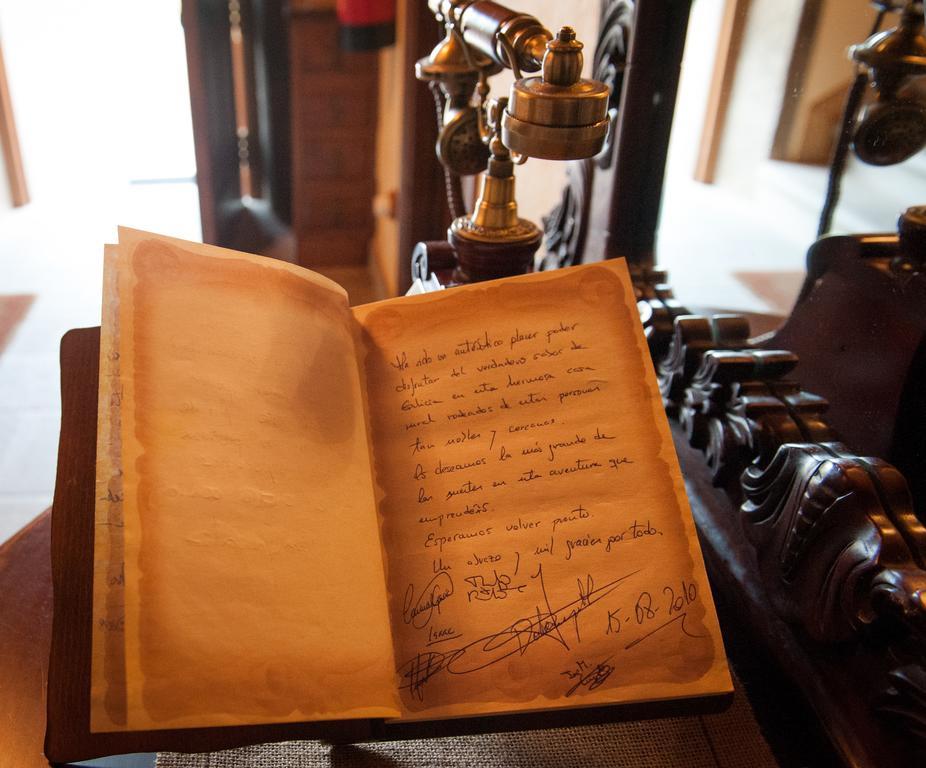 Ha sido un auténtico placer poder
disfrutar del verdadero sabor de
Galicia en esta hermosa casa
rural rodeados de estas personas
tan nobles y cercanas.
Os deseamos la más grande de
las suertes en esta aventura que
emprendéis.
Esperamos volver pronto.
Un abrazo y mil gracias por todo.
ISAAC
15-08-2010